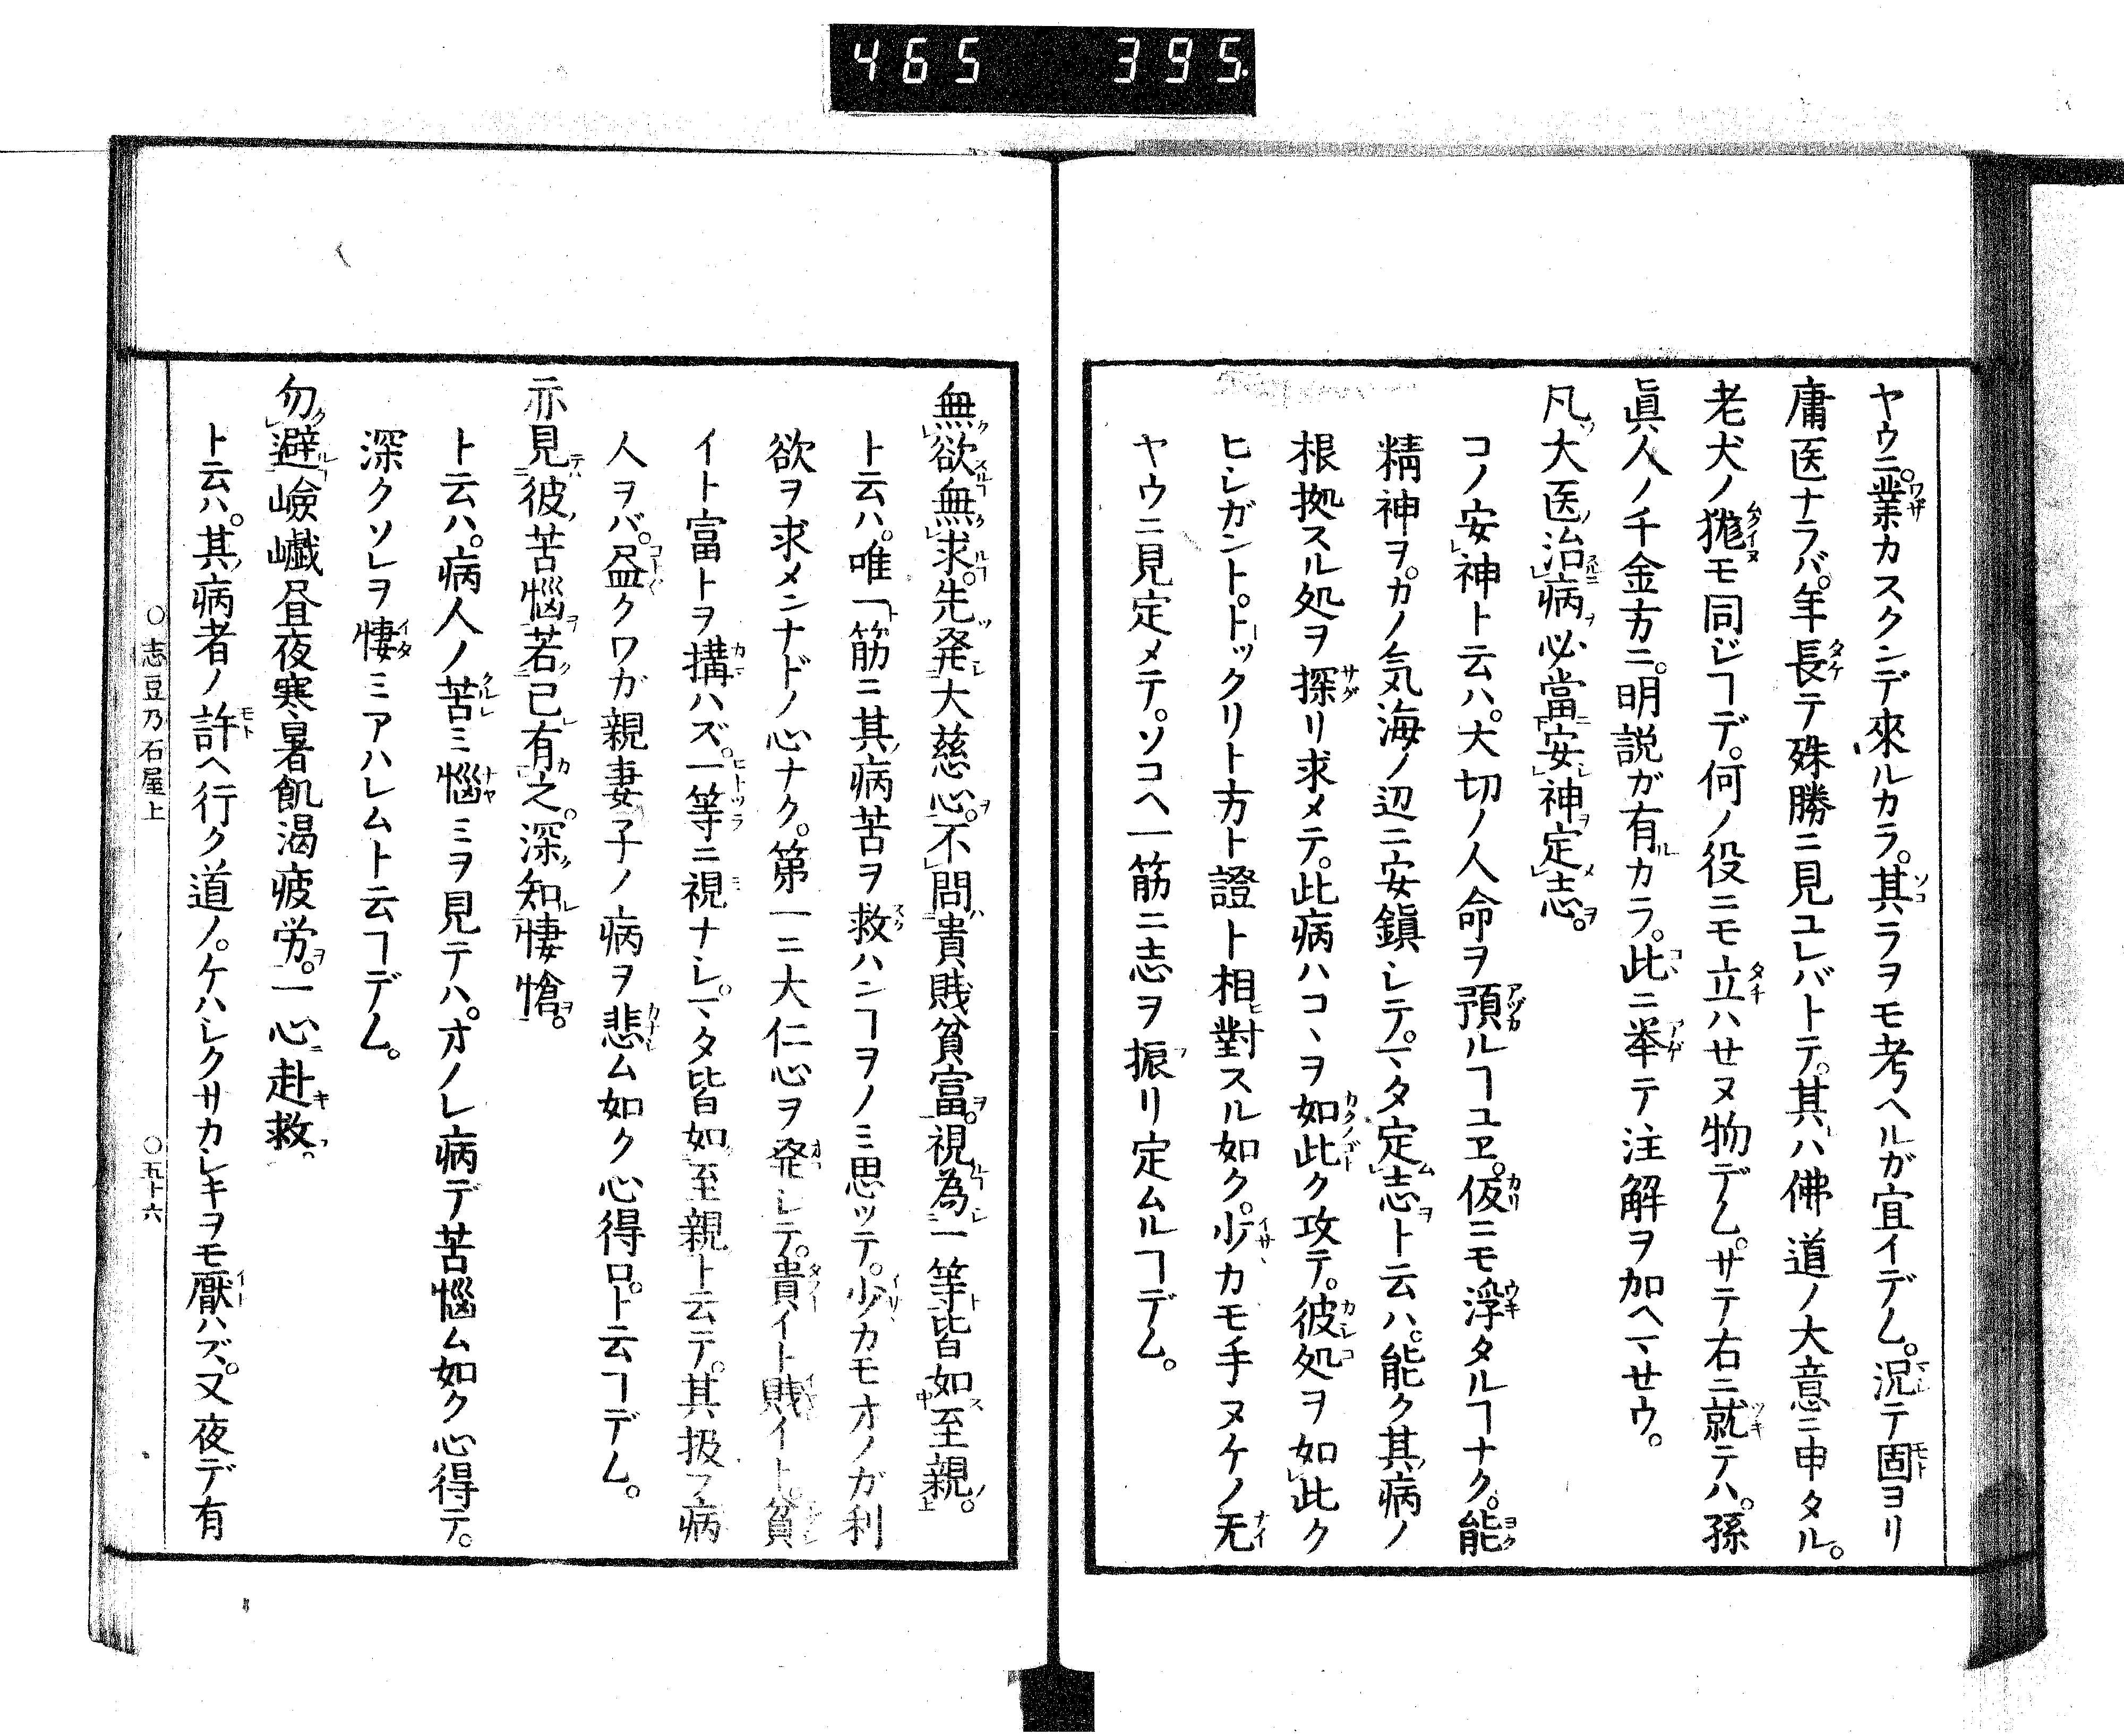 465 395.
ヤウニ。業カスクンデ來ルカラ。其ラヲモ考ヘルガ宜イデム。況テ固ヨリ
庸医ナラバ。年長テ殊勝ニ見ユレバトテ。其ハ佛道ノ大意ニ申タル。
老犬ノ狵モ同ジヿデ。何ノ役ニモ立ハセヌ物デム。サテ右ニ就テハ。孫
眞人ノ千金方ニ。明説ガ有ルカラ。此ニ挙テ注解ヲ加ヘマセウ。
凡大医治病必當安神定志。
コノ安神ト云ハ。大切ノ人命ヲ預ルヿユヱ。仮ニモ浮タルヿナク。能
精神ヲ。カノ気海ノ辺ニ安鎭シテ。マタ定志ト云ハ。能ク其病ノ
根拠スル処ヲ探リ求メテ。此病ハコヽヲ如此ク攻テ。彼処ヲ如此ク
ヒシガント。トックリト方ト證ト相對スル如ク。少カモ手ヌケノ无
ヤウニ見定メテ。ソコヘ一筋ニ志ヲ振リ定ムルヿデム。
無欲無求。先発大慈心。不問貴賎貧富。視為一等皆如至親。
ト云ハ。唯一筋ニ其病苦ヲ救ハンヿヲノミ思ッテ。少カモオノガ利
欲ヲ求メンナドノ心ナク。第一ニ大仁心ヲ発シテ。貴イト賎イト。貧
イト富トヲ搆ハズ。一等ニ視ナシ。マタ皆如至親ト云テ。其扱フ病
人ヲバ。盡クワガ親妻子ノ病ヲ悲ム如ク心得ロ。ト云ヿデム。
亦見彼苦惱若已有之。深知悽愴。
ト云ハ。病人ノ苦ミ惱ミヲ見テハ。オノレ病デ苦惱ム如ク心得テ。
深クソレヲ悽ミアハレムト云ヿデム。
勿避嶮巇昼夜寒暑飢渇疲労。一心赴救。
ト云ハ。其病者ノ許ヘ行ク道ノ。ケハシクサカシキヲモ厭ハズ。又夜デ有
○志豆乃石屋上 ○五十六